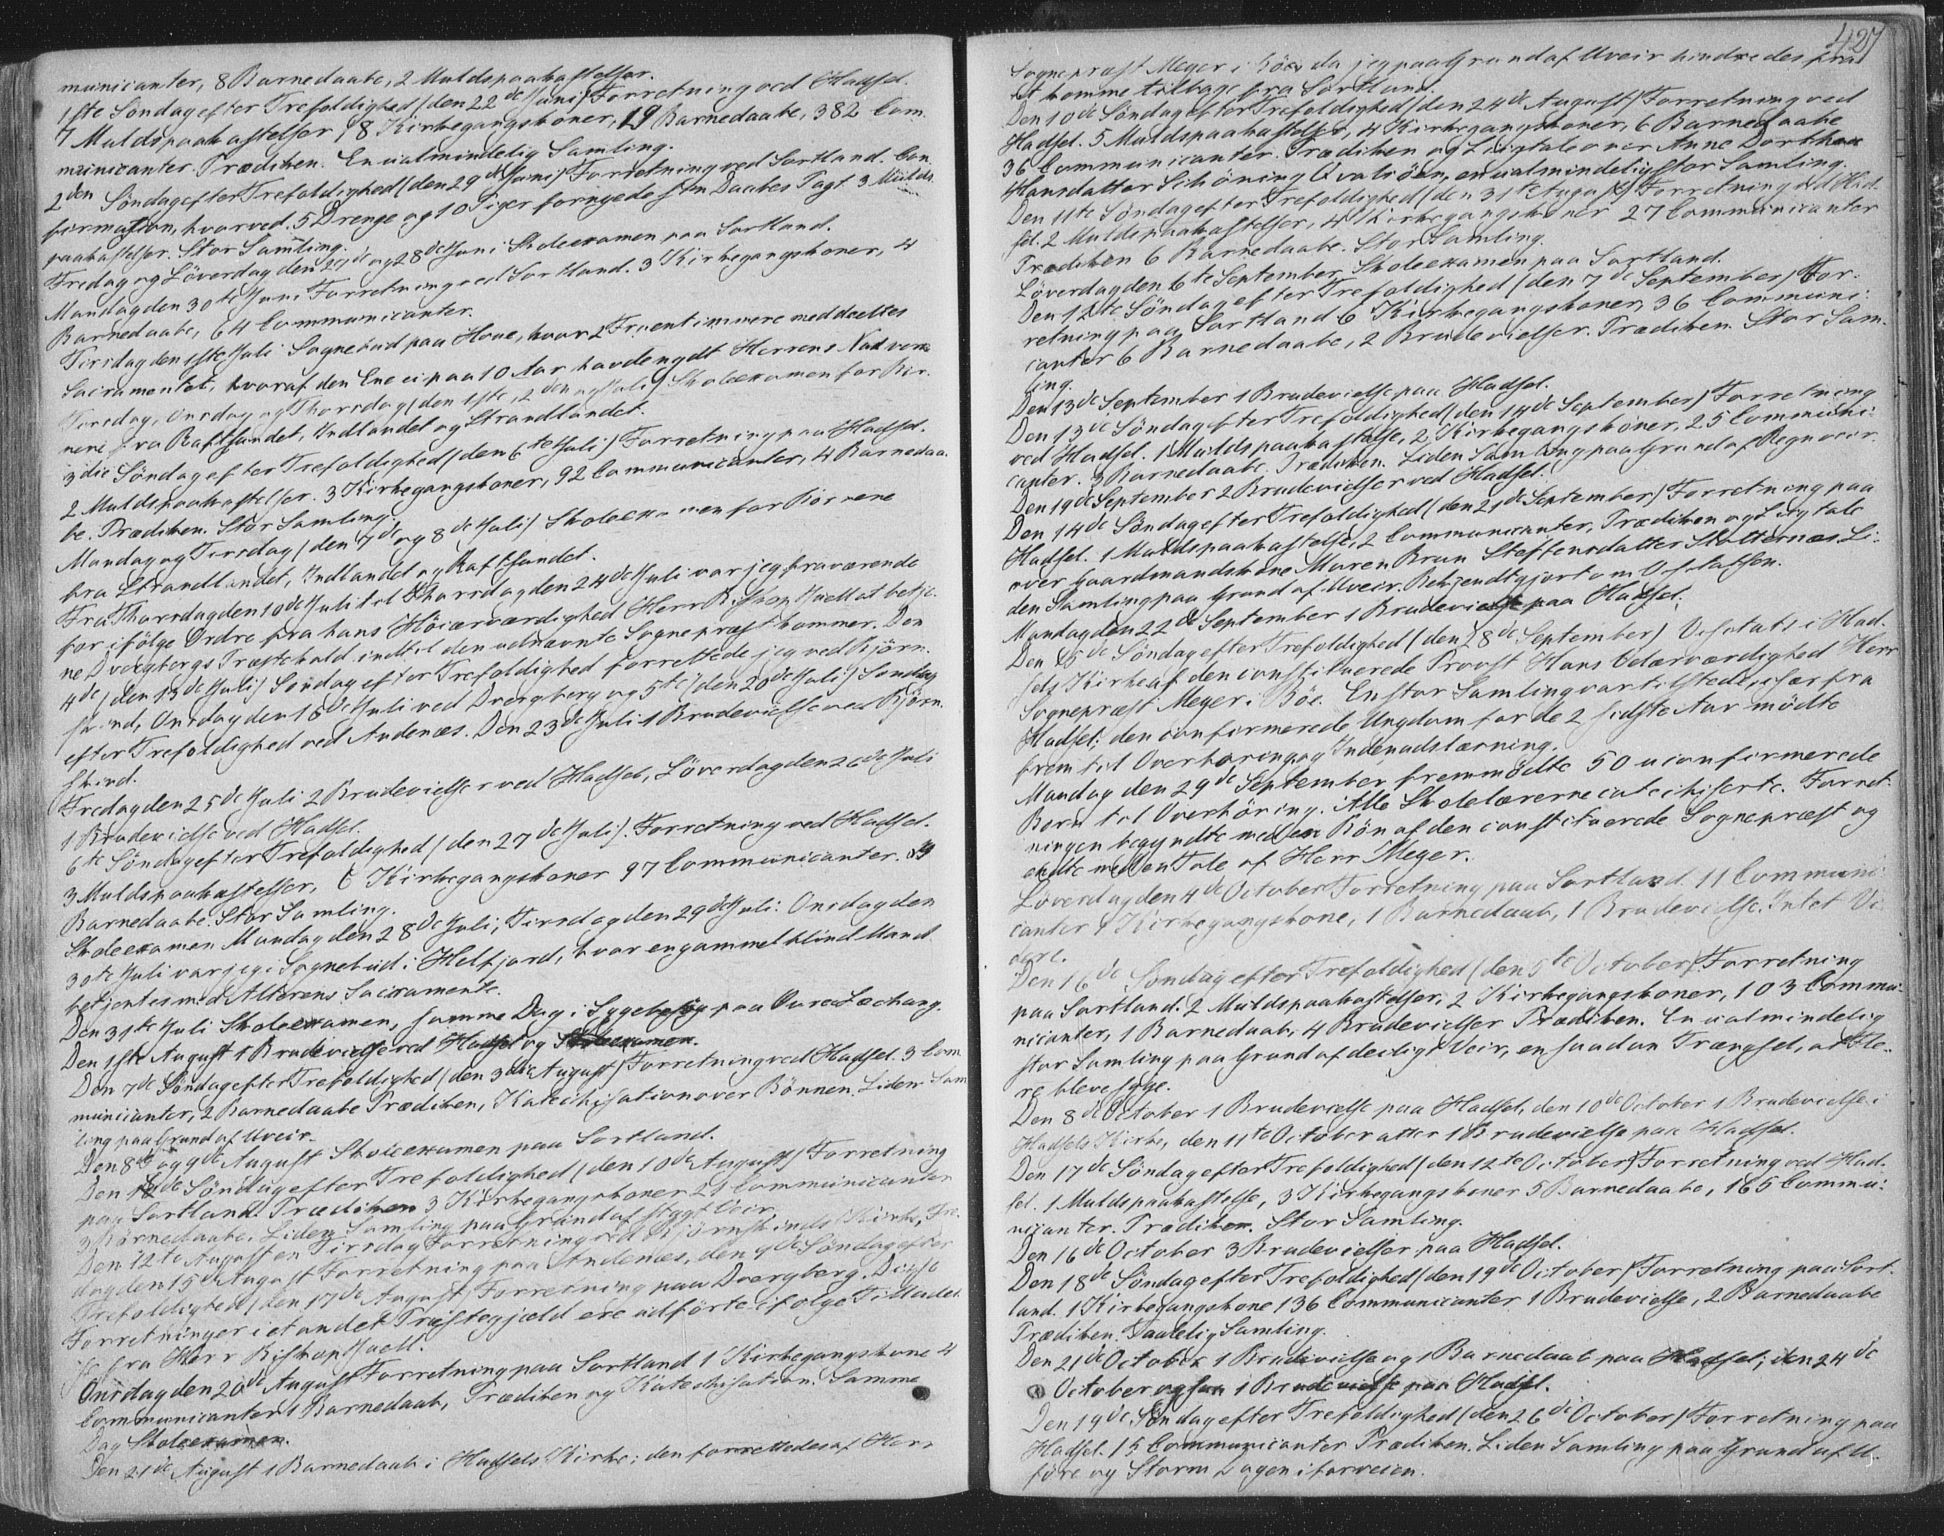 municanter, 8 Barnedaabe, 2 Muldspaakastelser.
1ste Søndag efter Trefoldighed (den 22de Juni) Forretning ved Hadsel.
7 Muldspaakastelser, 8 Kirkegangskoner, 19 Barnedaabe, 382 Com-
municanter. Prædiken. En ualmindelig Samling.
2den Søndag efter Trefoldighed (den 29de Juni) Forretning ved Sortland. Con-
firmation, hvorved 5 Drenge og 10 Piger fornyede sin Daabes Pagt. 3 Mulds-
paakastelser. Stor Samling.
Fredag og Löverdag den 27de og 28de Juni Skoleexamen paa Sortland.
Mandag den 30te Juni Forretning ved Sortland. 3 Kirkegangskoner, 4
Barnedaabe, 64 Communicanter.
Tirsdag den 1ste Juli Sognebud paa Hove, hvor 2 Fruentimmere meddeeltes
Sacramentet, hvoraf den Ene ei paa 10 Aar havde nydt Herrens Nadvere.
Tirsdag, Onsdag og Thorsdag (den 1ste, 2den og Juli) Skoleexamen for Bör-
nene fra Raftsundet, Indlandet og Strandlandet.
3die Söndag efter Trefoldighed (den 6te Juli) Forretning paa Hadsel.
2 Muldspaakastelser. 3 Kirkegangskoner, 92 Communicanter, 4 Barnedaa-
be. Prædiken. Stor Samling.
Mandag og Tirsdag (den 7de og 8de Juli) Skoleexamen for Börnene
fra Strandlandet, Indlandet og Raftsundet.
Fra Thorsdag den 10de Juli til Thorsdag den 24de Juli var jeg fraværende
for ifölge Ordre fra hans Höiærværdighed Herr Biskop Juell at betje-
ne Dverbergs Præstekald indtil den udnævnte Sognepræst kommer. Den
4de (den 13de Juli) Söndag efter Trefoldighed forrettede jeg ved Björn-
skind, Onsdag den 16de Juli ved Dverberg og 5te (den 20de Juli) Søndag
efter Trefoldighed ved Andenæs. Den 23de Juli 1 Brudevielse ved Björn-
skind.
Fredag den 25de Juli 2 Brudevielser ved Hadsel, Löverdag den 26de Juli
1 Brudevielse ved Hadsel.
6te Söndag efter Trefoldighed (den 27de Juli) Forretning ved Hadsel.
3 Muldspaakastelser, 6 Kirkegangskoner 97 Communicanter.
Barnedaabe. Stor Samling.
Skoleexamen Mandag den 28de Juli, Tirsdag den 29de Juli. Onsdag den
30te Juli var jeg i Sognebud i Helfjord, hvor en gammel blind Mand
betjentes med Alterens Sacramente.
Den 31te Juli Skoleexamen, samme Dag i Sygebesøg paa
Den 1ste August 1 Brudevielse ved Hadsel og Skoleexamen.
Den 7de Söndag efter Trefoldighed (den 3die August) Forretning ved Hadsel. 3 Com-
municanter, 2 Barnedaabe Prædiken, Katechisation over Bönnen. Liden Sam-
ling paa Grund af Uveir.
Den 8de og 9de August Skoleexamen paa Sortland.
Den 8de Söndag efter Trefoldighed (den 10de August) Forretning
paa Sortland. Prædiken 3 Kirkegangskoner 21 Communicanter
3 Barnedaabe. Liden Samling paa Grund af stygt Veir.
Den 12te August en Tirsdag Forretning ved Björnskinds Kirke, Fre-
dag den 15de August Forretning paa Andenæs, den 9de Söndag efter
Trefoldighed (den 17de August) Forretning paa Dverberg. Disse
Forretninger i et andet Præstegjæld ere udförte ifölge Tilladel-
se fra Herr Biskop Juell.
Onsdag den 20de August Forretning paa Sortland 1 Kirkegangskone 4
Communicanter 1 Barnedaab, Prædiken og Katechisation. Samme
Dag Skoleexamen.
Den 21de August 1 Barnedaab i Hadsels Kirke; den forrettedes af Herr
427
Sognepræst Meyer i Böe, da jeg paa Grund af Uveir hindredes fra
at komme tilbage fra Sortland.
Den 10de Söndag efter Trefoldighed (den 24de August) Forretning ved
Hadsel. 5 Muldspaakastelser, 4 Kirkegangskoner, 6 Barnedaabe
36 Communicanter. Prædiken og Liigtale over Anne Dorthea
Hansdatter Schöning Qvalröen, en ualmindelig stor Samling.
Den 11te Söndag efter Trefoldighed (den 31te August) Forretning ved Had-
sel. 2 Muldspaakastelser, 4 Kirkegangskoner 27 Communicanter
Prædiken 6 Barnedaabe. Stor Samling.
Löverdag den 6te September Skoleexamen paa Sortland.
Den 12te Söndag efter Trefoldighed (den 7de September) For-
retning paa Sortland 6 Kirkegangskoner, 36 Communi-
canter 6 Barnedaabe, 2 Brudevielser. Prædiken. Stor Sam-
ling.
Den 13de September 1 Brudevielse paa Hadsel.
Den 13de Söndag efter Trefoldighed (den 14de September) Forretning
ved Hadsel. 1 Muldspaakastelse, 2 Kirkegangskoner, 25 Communi-
canter. 3 Barnedaabe. Prædiken. Liden Samling paa Grund af Regnveir.
Den 19de September 2 Brudevielser ved Hadsel.
Den 14de Söndag efter Trefoldighed (den 21de September) Forretning paa
Hadsel. 1 Muldspaakastelse, 2 Communicanter, Prædiken og Liigtale
over Gaardmandskone Maren Brun Steffensdatter Skotternæs. Li-
den Samling paa Grund af Uveir. Bekjendtgjort om Visitatsen.
Mandag den 22de September 1 Brudevielse paa Hadsel.
Den 15de Söndag efter Trefoldighed (den 28de September) Visitats i Had-
sels Kirke af den constituerede Provst Hans Velærværdighed Herr
Sognepræst Meyer i Böe. En stor Samling var tilstede, især fra
Hadsel; den confirmerede Ungdom for de 2 sidste Aar mödte
frem til Overhöring og Indenadslæsning.
Mandag den 29de September fremmödte 50 uconfirmerede
Børn til Overhöring. Alle Skolelærerne catechiserte. Forret-
ningen begyndte med en Bön af den constituerede Sognepræst og
endte med en Tale af Herr Meyer.
Löverdag den 4de October Forretning paa Sortland. 11 Communi-
canter 1 Kirkegangskone, 1 Barnedaab, 1 Brudevielse. Intet Vi-
dere.
Den 16de Söndag efter Trefoldighed (den 5te October) Forretning
paa Sortland. 2 Muldspaakastelser, 2 Kirkegangskoner, 103 Commu-
nicanter, 1 Barnedaab, 4 Brudevielser Prædiken. En ualmindelig
stor Samling paa Grund af deiligt Veir, en saadan Trængsel, at Fle-
re bleve syge.
Den 8de October 1 Brudevielse paa Hadsel, den 10de October 1 Brudevielse i
Hadsels Kirke, den 11te October atter 1 Brudevielse paa Hadsel.
Den 17de Söndag efter Trefoldighed (den 12te October) Forretning ved Had-
sel. 1 Muldspaakastelse, 3 Kirkegangskoner 5 Barnedaabe, 165 Commu-
nicanter. Prædiken. Stor Samling.
Den 16de October 3 Brudevielser paa Hadsel.
Den 18de Söndag efter Trefoldighed (den 19de October) Forretning paa Sort-
land. 1 Kirkegangskone 136 Communicanter 1 Brudevielse, 2 Barnedaabe
Prædiken. Taalelig Samling.
Den 21de October 1 Brudevielse og 1 Barnedaab paa Hadsel; den 24de
October ogsaa 1 Brudevielse paa Hadsel.
Den 19de Söndag efter Trefoldighed (den 26de October) Forretning paa
Hadsel. 15 Communicanter Prædiken. Liden Samling paa Grund af U-
före og Storm Dagen i forveien.